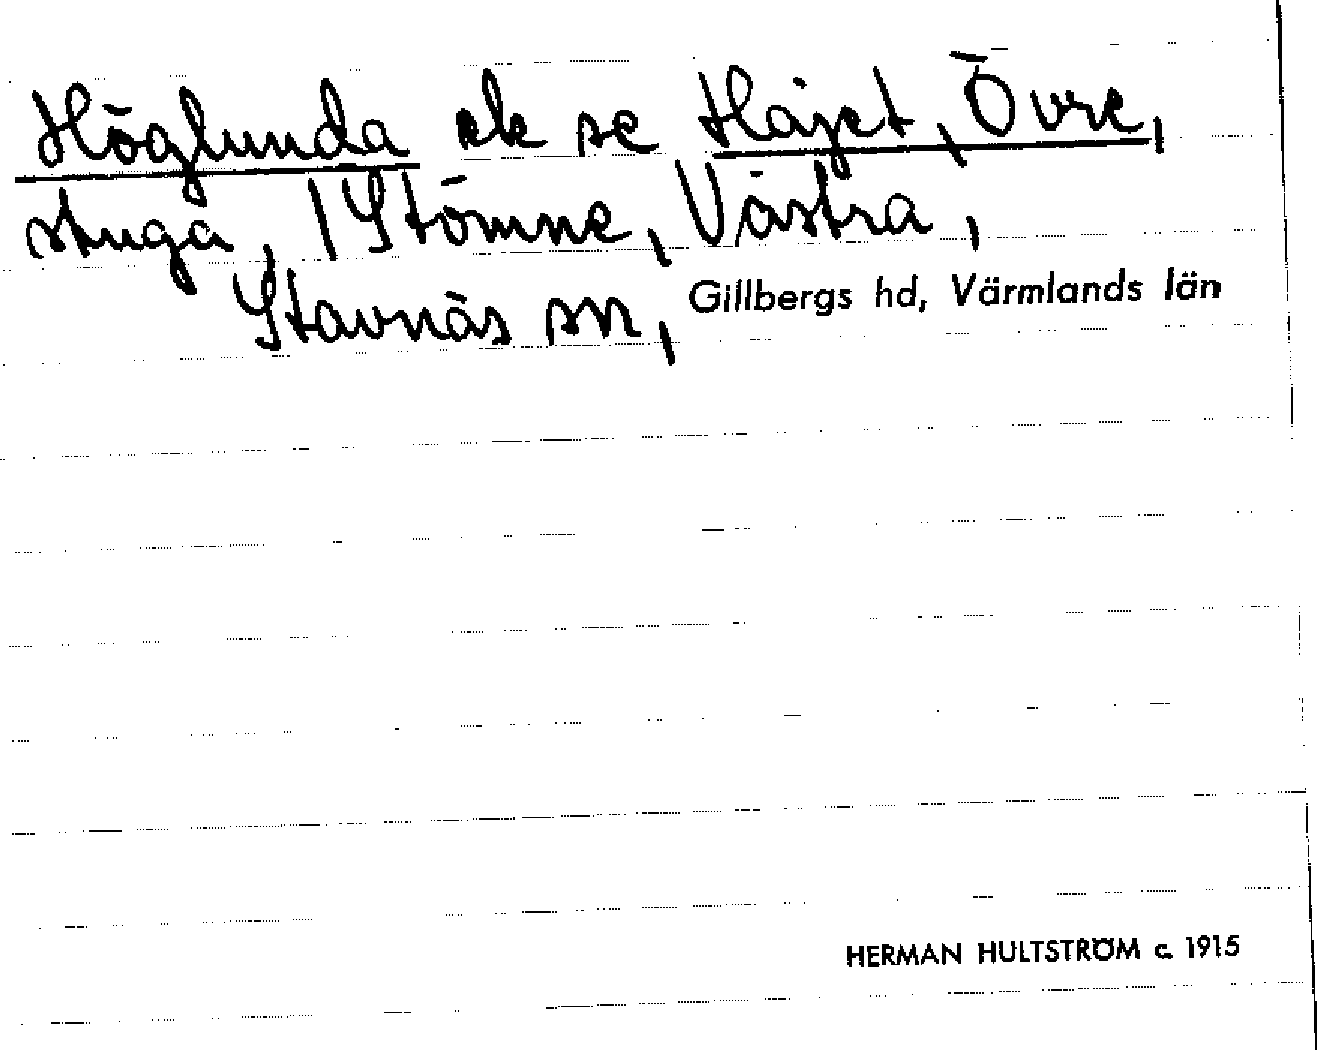 Höglunda ek se Häjet, Övre,
stuga, 1 Stömne, Västra,
Stavnäs sn, Gillbergs hd, Värmlands län
HERMAN HULTSTRÖM c. 1915